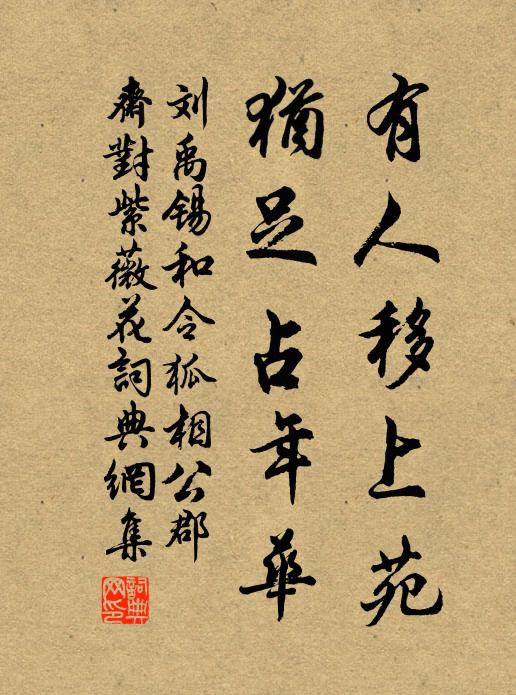 有人移上苑
猶足占年華
刘禹锡和令狐相公郡
齋對紫薇花詞典網集
詞典網印